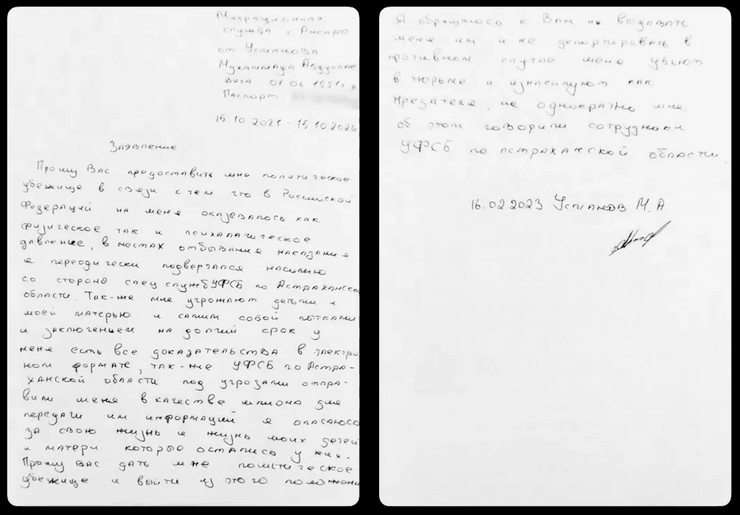 Миграционная
служба г. Анкара
от Усманова
Мухаммада Абдулае
вича 08.06 1991г.р
Паспорт
15.10 2021-15.10.2026
Заявление
Прошу Вас предоставить мне политическое
убежище в связи с тем что в Российской
Федераций на меня оказывалось как
физическое так и психалагическое
давление, в мостах отбывания наказания
я переодически подвергался насилию
со стороны спец служб УФСБ по Астраханской
области. Так-же мне угрожают детьми и
моей матерью и самим собой пытками
и заключением на долгий срок у
меня есть все доказательства в электро
ном формате, так-же УФСБ по Астра-
ханской области под угрозами отпра-
вили меня в качестве шпиона для
передачи им информаций я опасаюсь
за свою жизнь и жизнь моих детей
и матери которые остались у них.
Прошу Вас дать мне политическое
убежище и выйти из этого положения
Я обращаюсь к Вам не выдовать
меня им и не депортировать в
противном случае меня убьют
в тюрьме и изнасилуют как
предателя, не однократно мне
об этом говорили сотрудники
УФСБ по Астраханской области.
16.02.2023 Усманов М.А